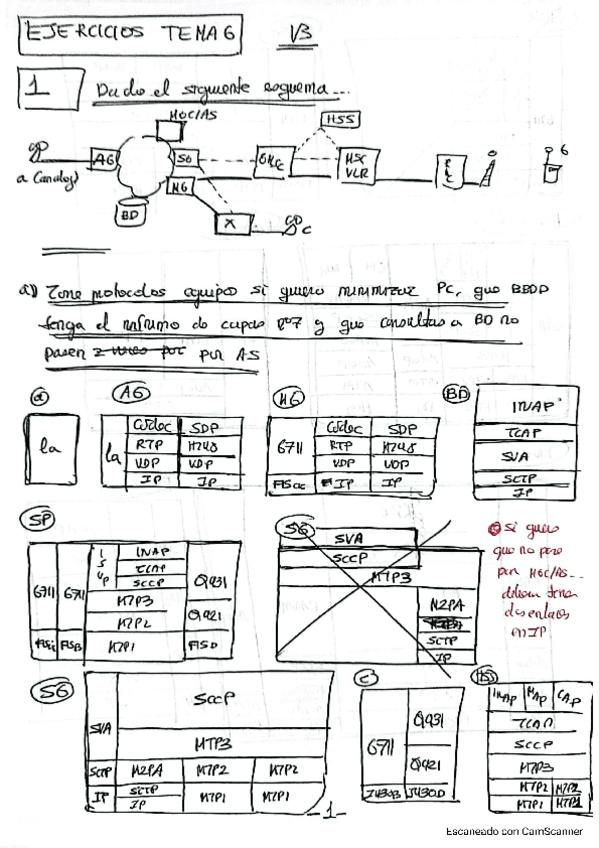 EJERCICIOS TEMA 6 1/3
1 Dado el siguiente esquema...
MGC/AS
HSS
AG
SG
MG
GMSC
MSC
VLR
a (analog)
BD
X
C
G
a) Zone protocolos equipos si quiero minimizar PC, que BBDD
tenga el mínimo de capas nº7 y que consultas a BD no
pasen por AS
a
AG
MG
BD
la
la
Codec SDP
RTP H248
UDP UDP
IP IP
G711
Codec SDP
RTP H248
UDP UDP
IP IP
INAP
TCAP
SUA
SCTP
IP
SP
SG
G711 G711
ISUP
INAP
TCAP
SCCP
MTP3
MTP2
MTP1
Q931
Q921
FISB FISD
SUA
SCCP
MTP3
M2PA
SCTP
IP
Si quiero
que no pase
por MGC/AS...
deben tener
dos enlaces
en IP
SG
SUA
SCCP
MTP3
SCTP M2PA MTP2 MTP2
IP SCTP MTP1 MTP1
IP
C
G711
Q931
Q921
I430B I430D
HSS
INAP MAP CAP
TCAP
SCCP
MTP3
MTP2 MTP2
MTP1 MTP1
-1-
Escaneado con CamScanner